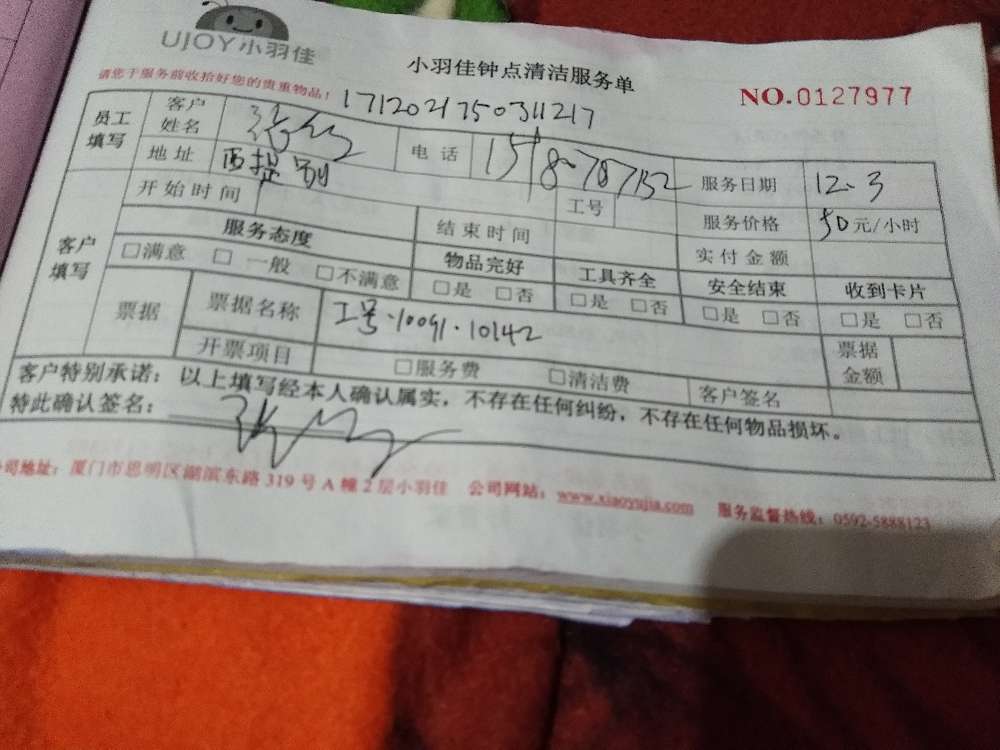 UJOY小羽佳
小羽佳钟点清洁服务单
请您于服务前收拾好您的贵重物品！
171202175031217
NO.0127977
员工填写 客户姓名 电话 服务日期 12.3
地址 西堤别
开始时间 工号 服务价格 50元/小时
客户填写 服务态度 结束时间 实付金额
□满意 □一般 □不满意 物品完好 工具齐全 安全结束 收到卡片
□是 □否 □是 □否 □是 □否 □是 □否
票据 票据名称 工号·10091·10142 票据金额
开票项目 □服务费 □清洁费 客户签名
客户特别承诺：以上填写经本人确认属实，不存在任何纠纷，不存在任何物品损坏。
特此确认签名：
公司地址：厦门市思明区湖滨东路319号A幢2层小羽佳 公司网站：www.xiaoyujia.com 服务监督热线：0592-5888123